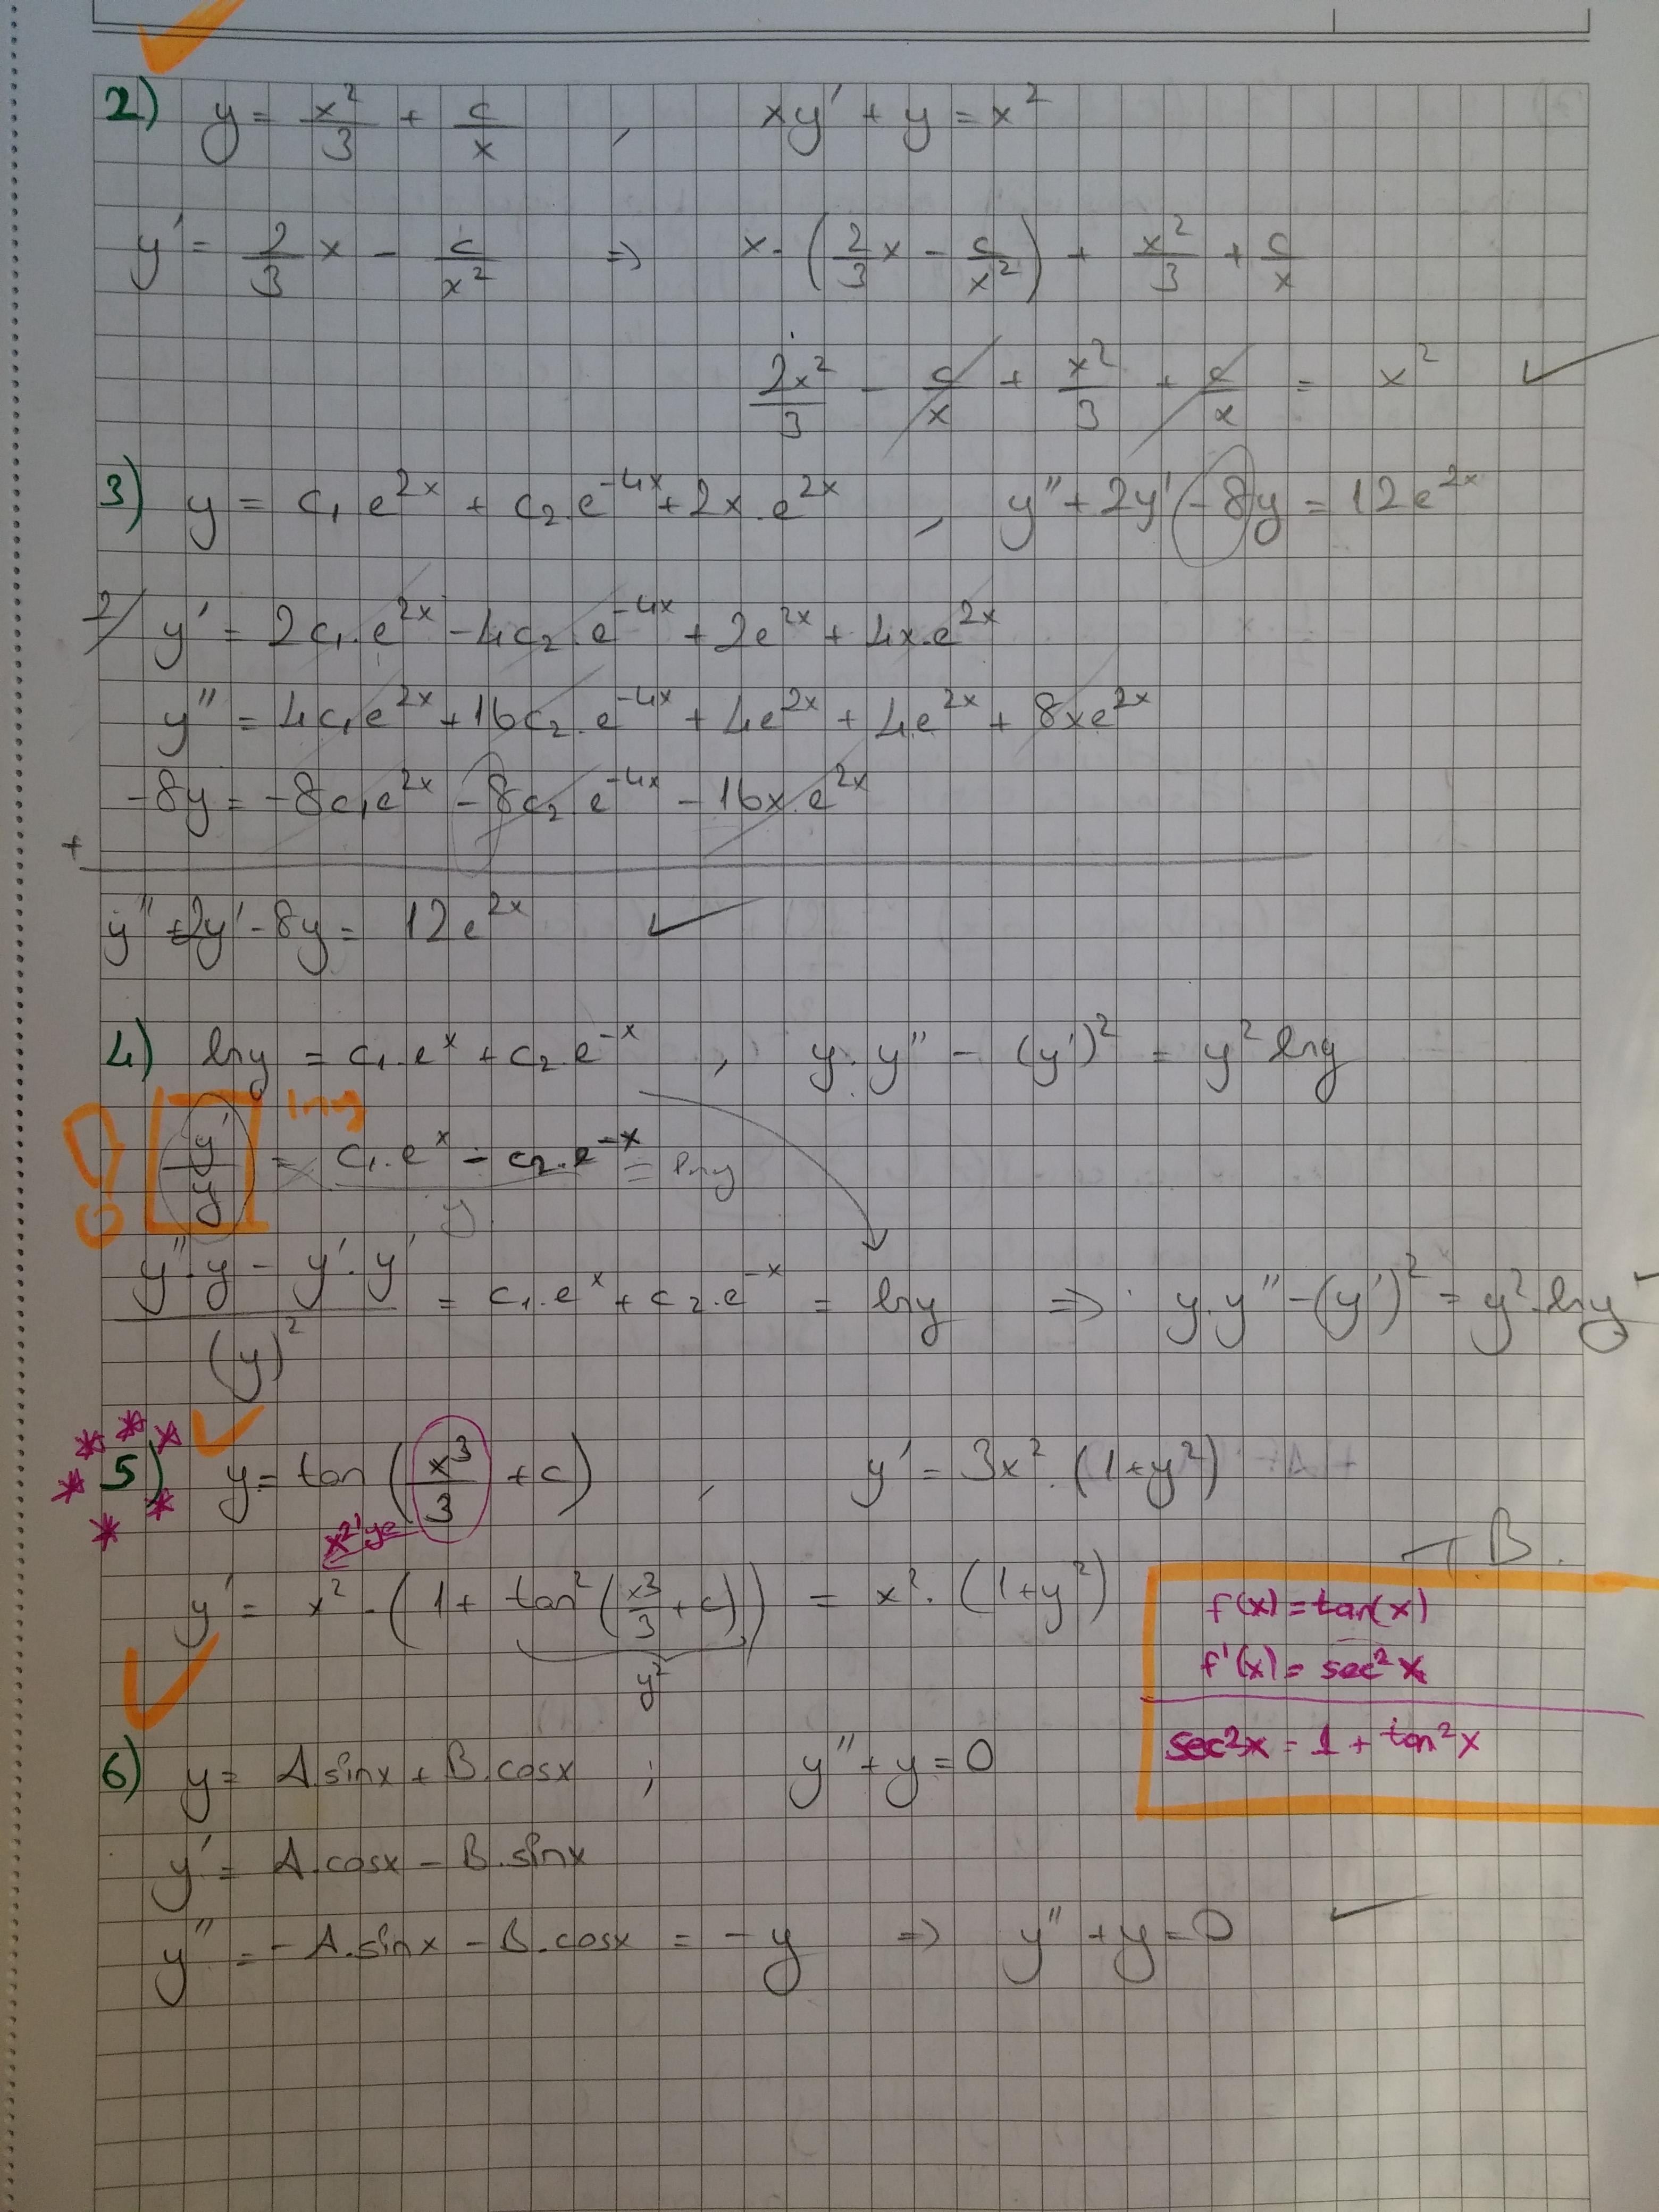 2) y = x²/3 + c/x , xy' + y = x²
y' = 2/3 x - c/x² ⇒ x·(2/3 x - c/x²) + x²/3 + c/x
2x²/3 - c/x + x²/3 + c/x = x² ✓
3) y = c₁e^2x + c₂.e^-4x + 2x.e^2x , y'' + 2y' - 8y = 12e^2x
2/ y' = 2c₁.e^2x - 4c₂.e^-4x + 2e^2x + 4x.e^2x
y'' = 4c₁e^2x + 16c₂.e^-4x + 4e^2x + 4e^2x + 8xe^2x
-8y = -8c₁e^2x - 8c₂.e^-4x - 16x.e^2x
+
y'' + 2y' - 8y = 12e^2x ✓
4) lny = c₁.e^x + c₂.e^-x , y.y'' - (y')² = y² lny
lny
y'/y = c₁.e^x - c₂.e^-x = lny
y
(y''.y - y'.y')/(y)² = c₁.e^x + c₂.e^-x = lny ⇒ y.y'' - (y')² = y².lny
5) y = tan(x³/3 + c) , y' = 3x².(1+y²)
x²'ye
T.B.
y' = x².(1 + tan²(x³/3 + c)) = x².(1+y²)
y²
f(x) = tan(x)
f'(x) = sec²x
sec²x = 1 + tan²x
6) y = A.sinx + B.cosx ; y'' + y = 0
y' = A.cosx - B.sinx
y'' = -A.sinx - B.cosx = -y ⇒ y'' + y = 0 ✓